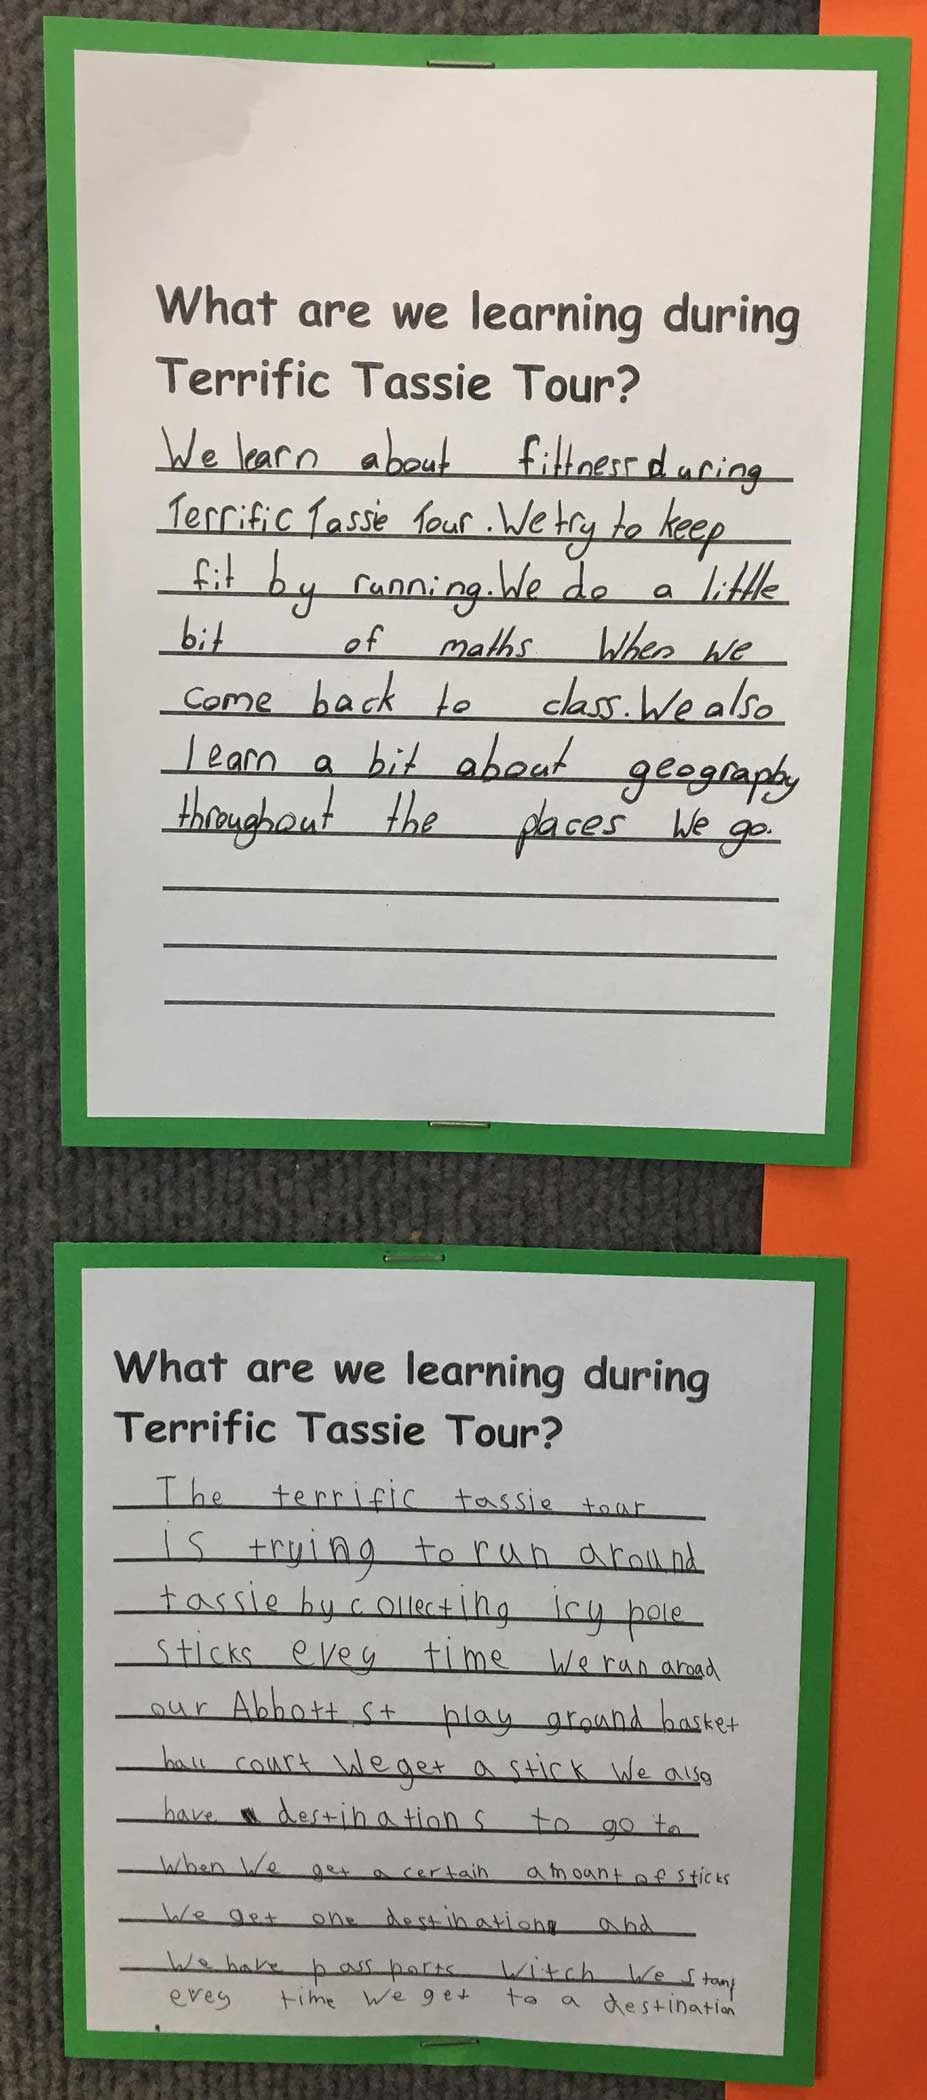 What are we learning during
Terrific Tassie Tour?
We learn about fittness during
Terrific Tassie Tour. We try to keep
fit by running. We do a little
bit of maths when we
come back to class. We also
learn a bit about geography
throughout the places we go.
What are we learning during
Terrific Tassie Tour?
The terrific tassie tour
is trying to run around
tassie by collecting icy pole
sticks evey time we run aroad
our Abbott st play ground basket
ball court We get a stick We also
have destinations to go to
when We get a certain amount of sticks
We get one destination and
We have pass ports witch We stamp
evey time We get to a destination